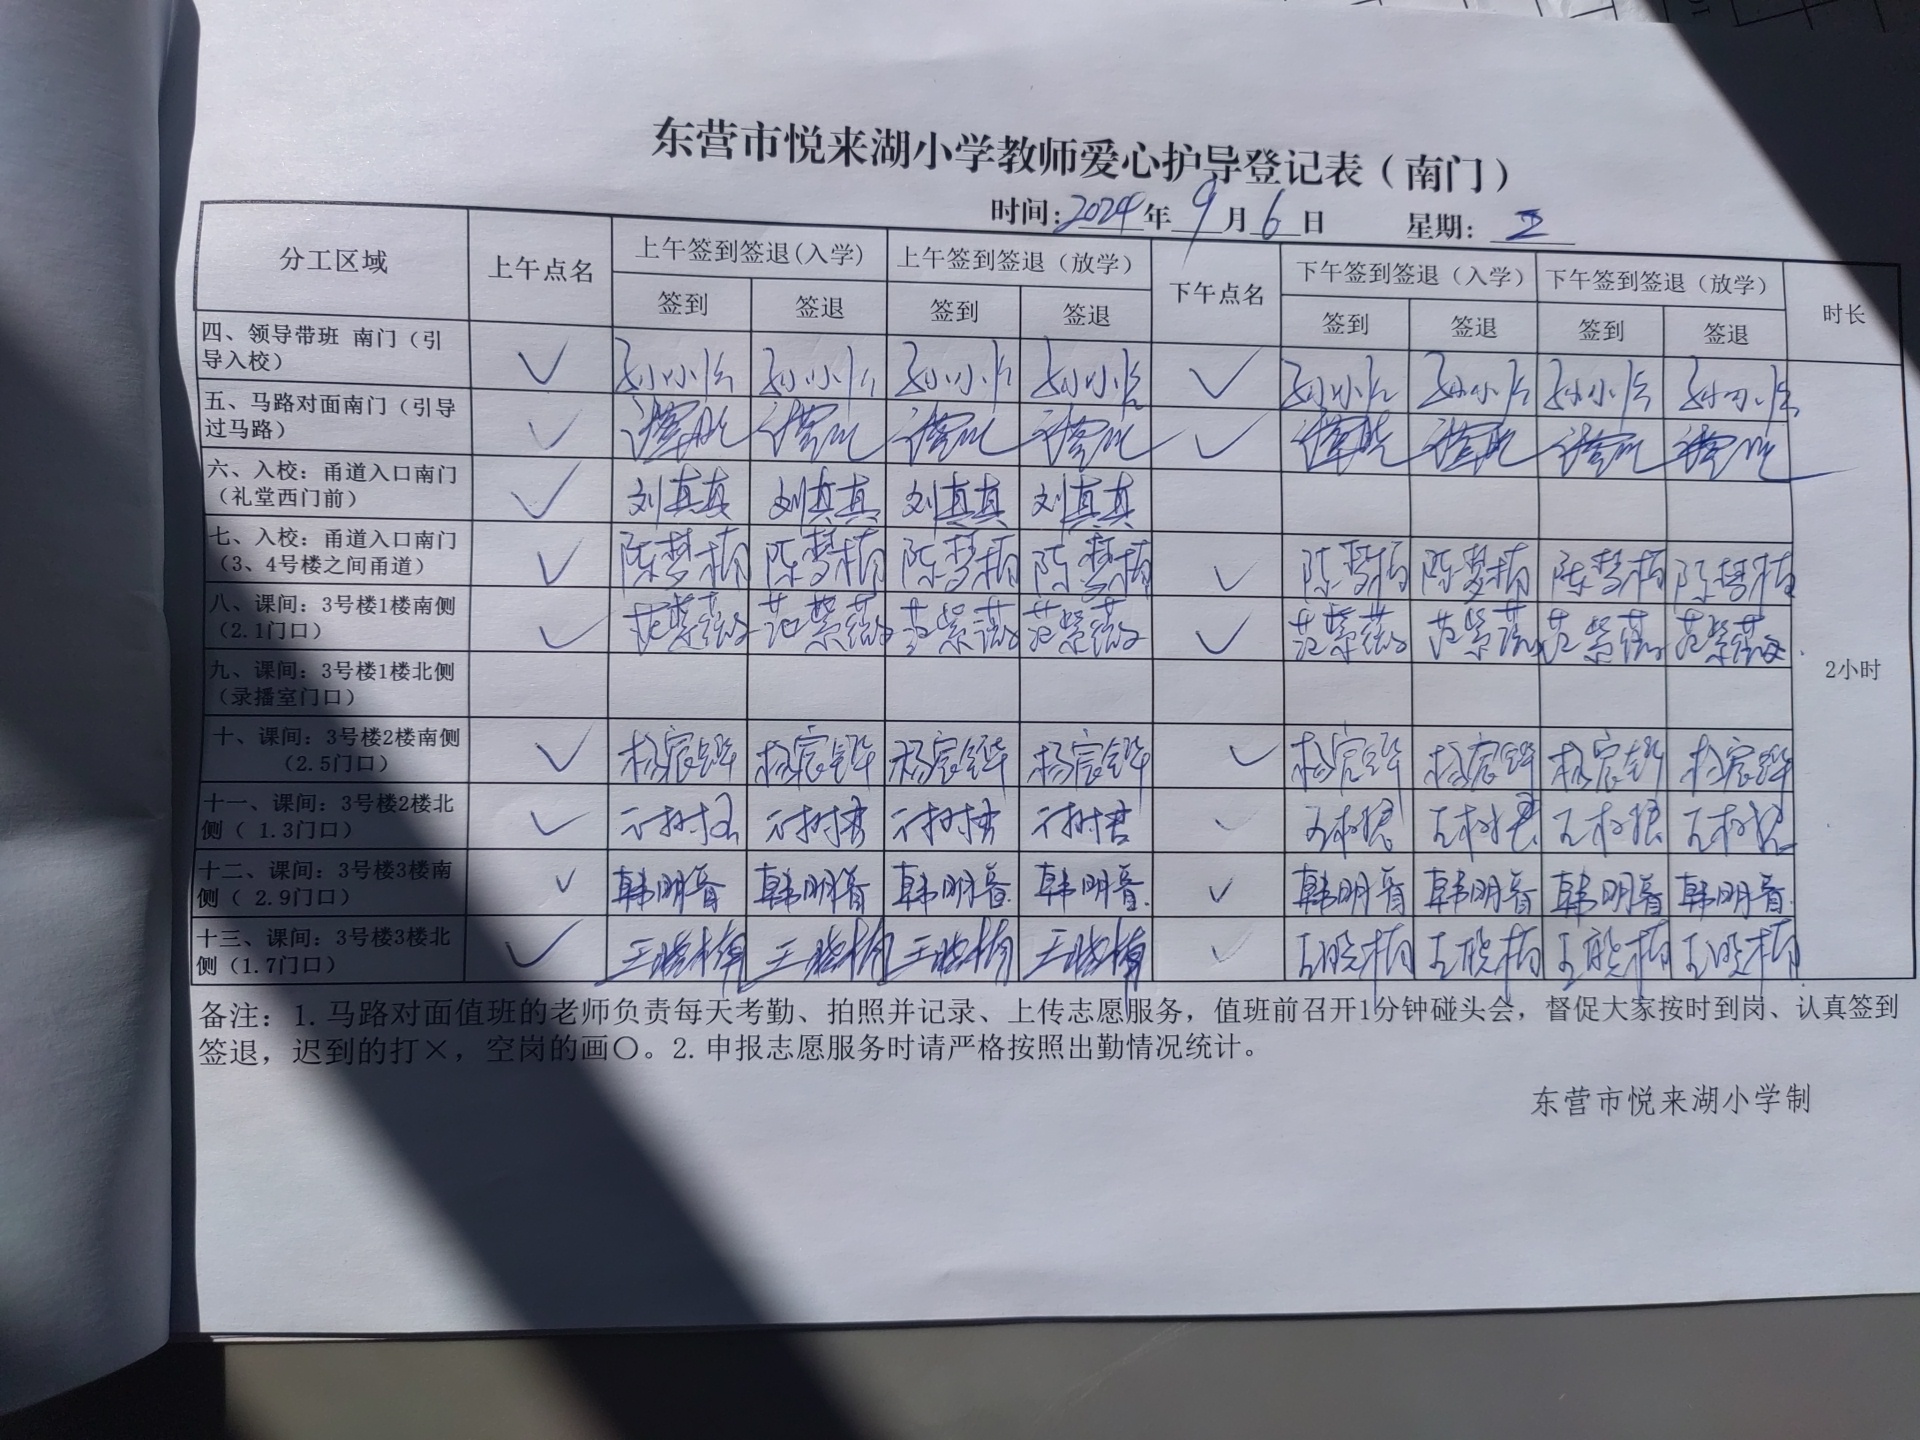 东营市悦来湖小学教师爱心护导登记表（南门）
时间：2024年9月6日 星期：五
分工区域 上午点名 上午签到签退(入学) 上午签到签退（放学） 下午点名 下午签到签退（入学） 下午签到签退（放学） 时长
签到 签退 签到 签退 签到 签退 签到 签退
四、领导带班 南门（引
导入校） ✓ ✓
五、马路对面南门（引导
过马路） ✓ ✓
六、入校：甬道入口南门
（礼堂西门前） ✓ 刘真真 刘真真 刘真真 刘真真
七、入校：甬道入口南门
（3、4号楼之间甬道） ✓ 陈梦楠 陈梦楠 陈梦楠 陈梦楠 ✓ 陈梦楠 陈梦楠 陈梦楠 陈梦楠
八、课间：3号楼1楼南侧
（2.1门口） ✓ 范紫薇 范紫薇 范紫薇 范紫薇 ✓ 范紫薇 范紫薇 范紫薇 范紫薇
九、课间：3号楼1楼北侧
（录播室门口）
2小时
十、课间：3号楼2楼南侧
（2.5门口） ✓ 杨宸铧 杨宸铧 杨宸铧 杨宸铧 ✓ 杨宸铧 杨宸铧 杨宸铧 杨宸铧
十一、课间：3号楼2楼北
侧（ 1.3门口） ✓ ✓
十二、课间：3号楼3楼南
侧（ 2.9门口） ✓ 韩明晋 韩明晋 韩明晋 韩明晋 ✓ 韩明晋 韩明晋 韩明晋 韩明晋
十三、课间：3号楼3楼北
侧（1.7门口） ✓ 王晓楠 王晓楠 王晓楠 王晓楠 ✓ 王晓楠 王晓楠 王晓楠 王晓楠
备注：1.马路对面值班的老师负责每天考勤、拍照并记录、上传志愿服务，值班前召开1分钟碰头会，督促大家按时到岗、认真签到
签退，迟到的打×，空岗的画〇。2.申报志愿服务时请严格按照出勤情况统计。
东营市悦来湖小学制